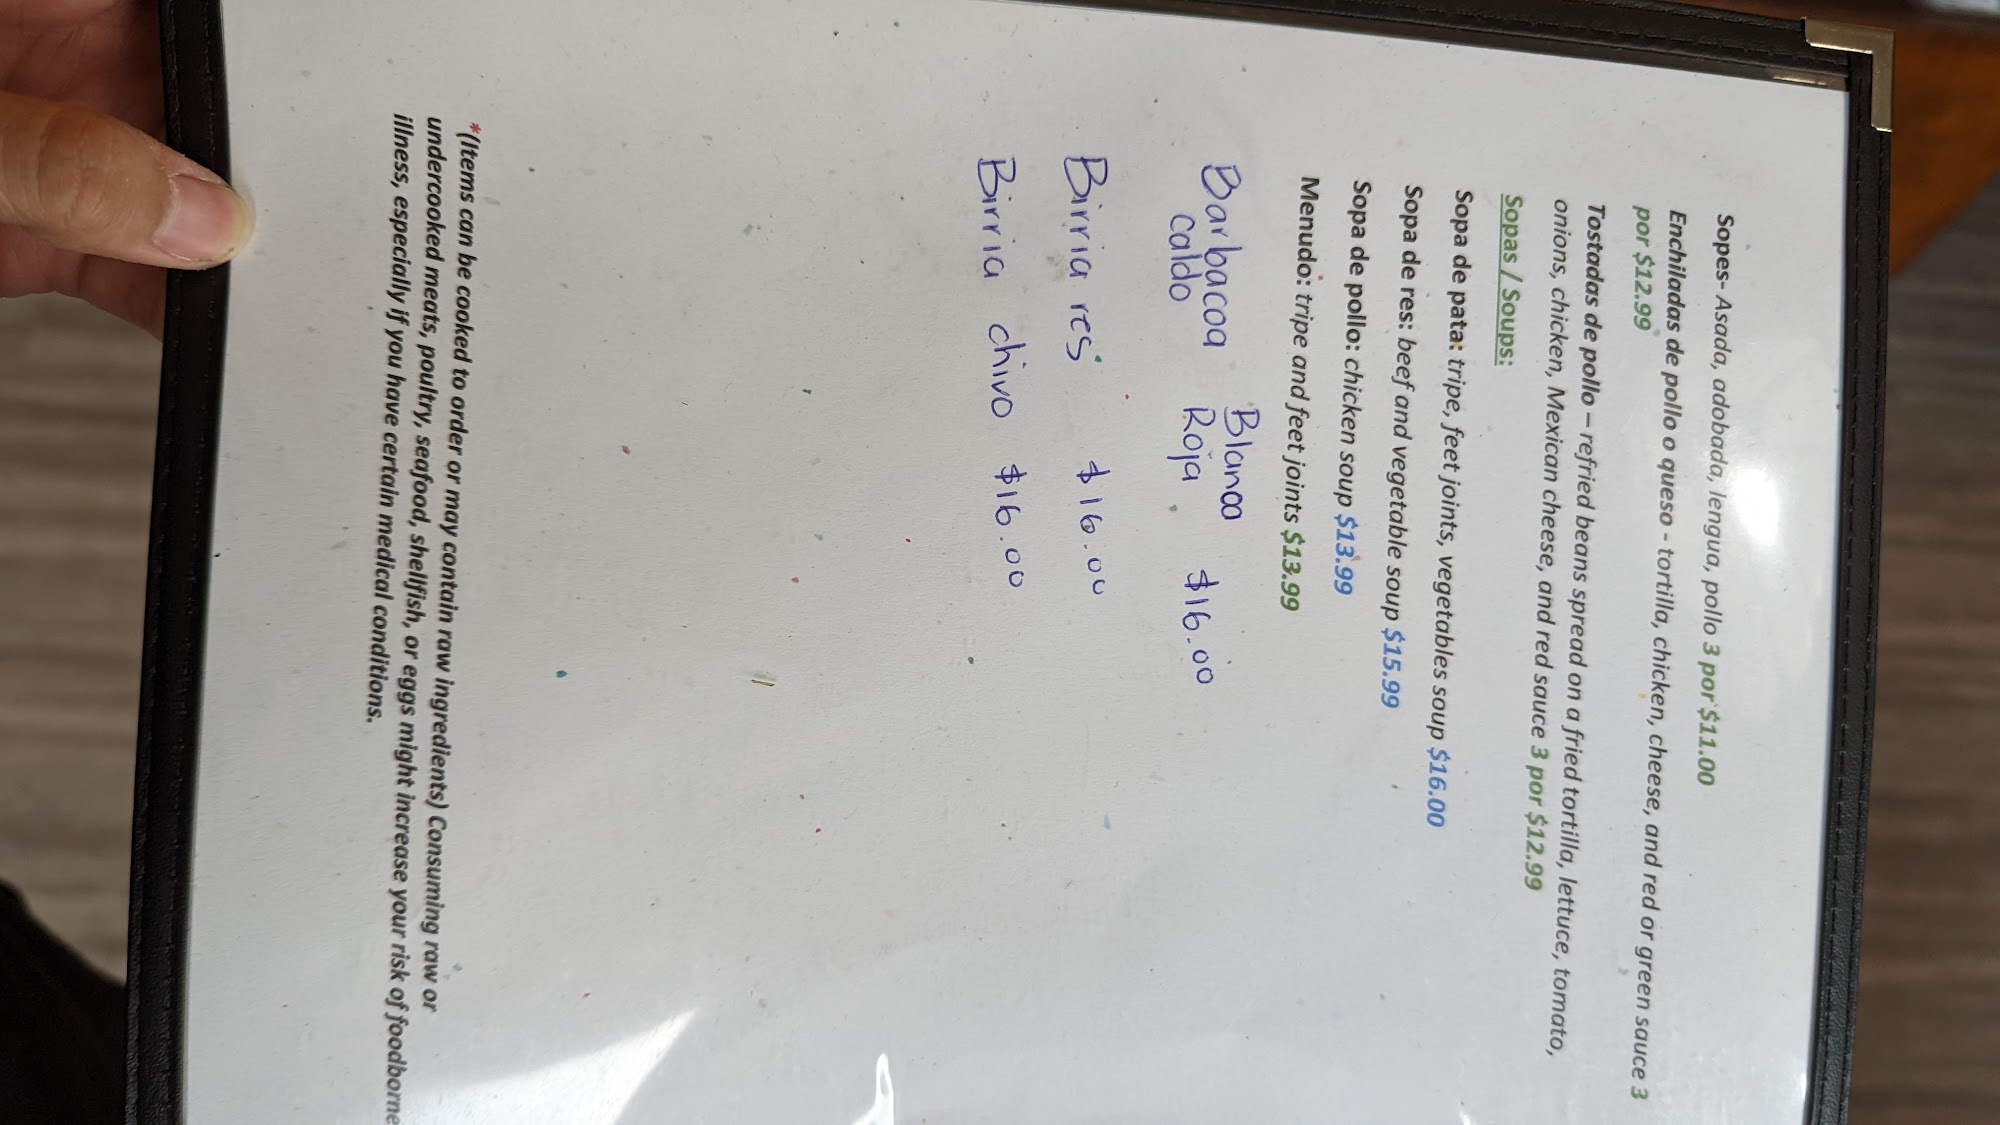 Sopes- Asada, adobada, lengua, pollo 3 por $11.00
Enchiladas de pollo o queso - tortilla, chicken, cheese, and red or green sauce 3
por $12.99
Tostadas de pollo – refried beans spread on a fried tortilla, lettuce, tomato,
onions, chicken, Mexican cheese, and red sauce 3 por $12.99
Sopas / Soups:
Sopa de pata: tripe, feet joints, vegetables soup $16.00
Sopa de res: beef and vegetable soup $15.99
Sopa de pollo: chicken soup $13.99
Menudo: tripe and feet joints $13.99
Barbacoa Blanca $16.00
Caldo Roja
Birria res $16.00
Birria chivo $16.00
*(Items can be cooked to order or may contain raw ingredients) Consuming raw or
undercooked meats, poultry, seafood, shellfish, or eggs might increase your risk of foodborne
illness, especially if you have certain medical conditions.